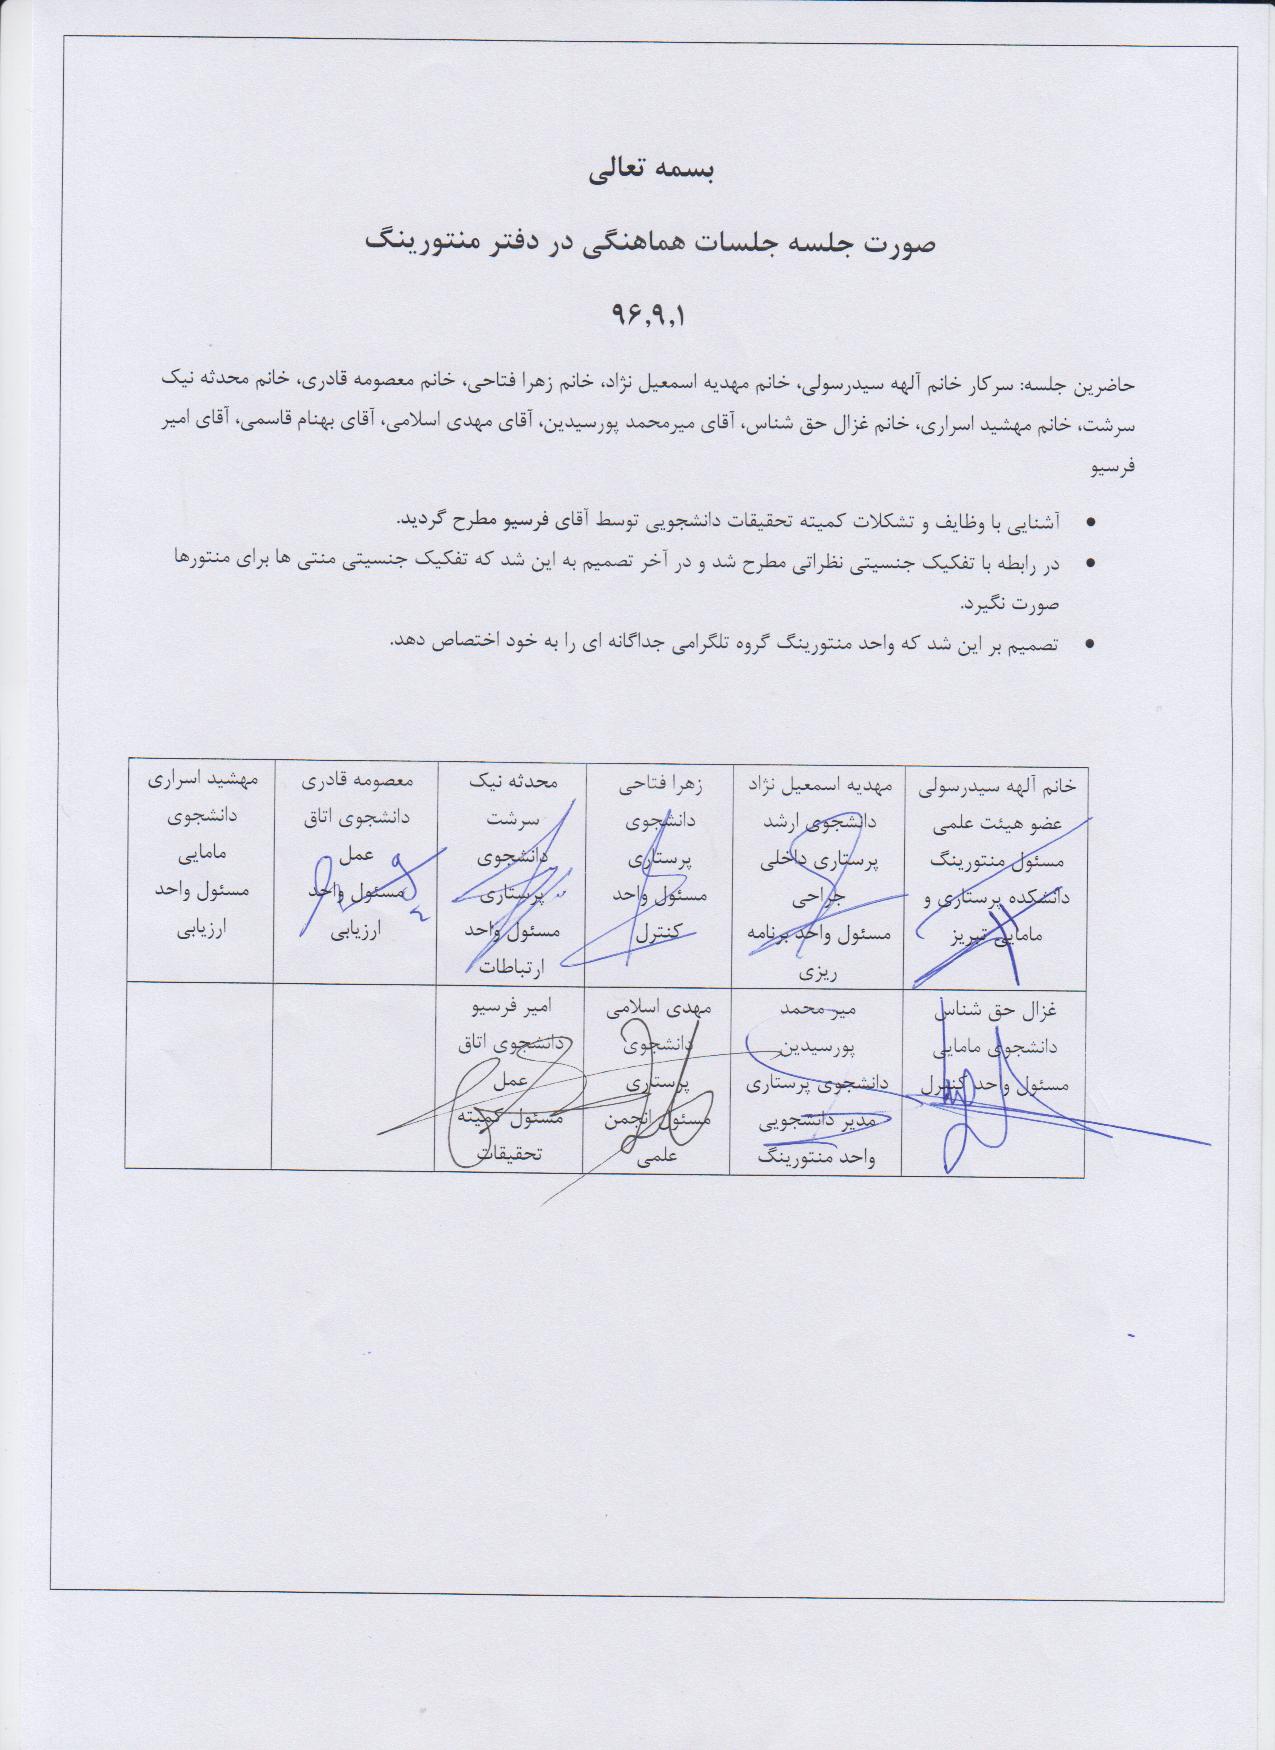 بسمه تعالی
صورت جلسه جلسات هماهنگی در دفتر منتورینگ
۹۶,۹,۱
حاضرین جلسه: سرکار خانم آلهه سیدرسولی، خانم مهدیه اسمعیل نژاد، خانم زهرا فتاحی، خانم معصومه قادری، خانم محدثه نیک
سرشت، خانم مهشید اسراری، خانم غزال حق شناس، آقای میرمحمد پورسیدین، آقای مهدی اسلامی، آقای بهنام قاسمی، آقای امیر
فرسیو
• آشنایی با وظایف و تشکلات کمیته تحقیقات دانشجویی توسط آقای فرسیو مطرح گردید.
• در رابطه با تفکیک جنسیتی نظراتی مطرح شد و در آخر تصمیم به این شد که تفکیک جنسیتی منتی ها برای منتورها
صورت نگیرد.
• تصمیم بر این شد که واحد منتورینگ گروه تلگرامی جداگانه ای را به خود اختصاص دهد.
خانم آلهه سیدرسولی
عضو هیئت علمی
مسئول منتورینگ
دانشکده پرستاری و
مامایی تبریز
مهدیه اسمعیل نژاد
دانشجوی ارشد
پرستاری داخلی
جراحی
مسئول واحد برنامه
ریزی
زهرا فتاحی
دانشجوی
پرستاری
مسئول واحد
کنترل
محدثه نیک
سرشت
دانشجوی
پرستاری
مسئول واحد
ارتباطات
معصومه قادری
دانشجوی اتاق
عمل
مسئول واحد
ارزیابی
مهشید اسراری
دانشجوی
مامایی
مسئول واحد
ارزیابی
غزال حق شناس
دانشجوی مامایی
مسئول واحد کنترل
میر محمد
پورسیدین
دانشجوی پرستاری
مدیر دانشجویی
واحد منتورینگ
مهدی اسلامی
دانشجوی
پرستاری
مسئول انجمن
علمی
امیر فرسیو
دانشجوی اتاق
عمل
مسئول کمیته
تحقیقات